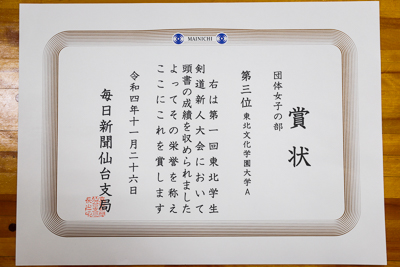 MAINICHI
賞状
団体女子の部
第三位 東北文化学園大学A
右は第一回東北学生
剣道新人大会において
頭書の成績を収められました
よってその栄誉を称え
ここにこれを賞します
令和四年十一月二十六日
毎日新聞仙台支局